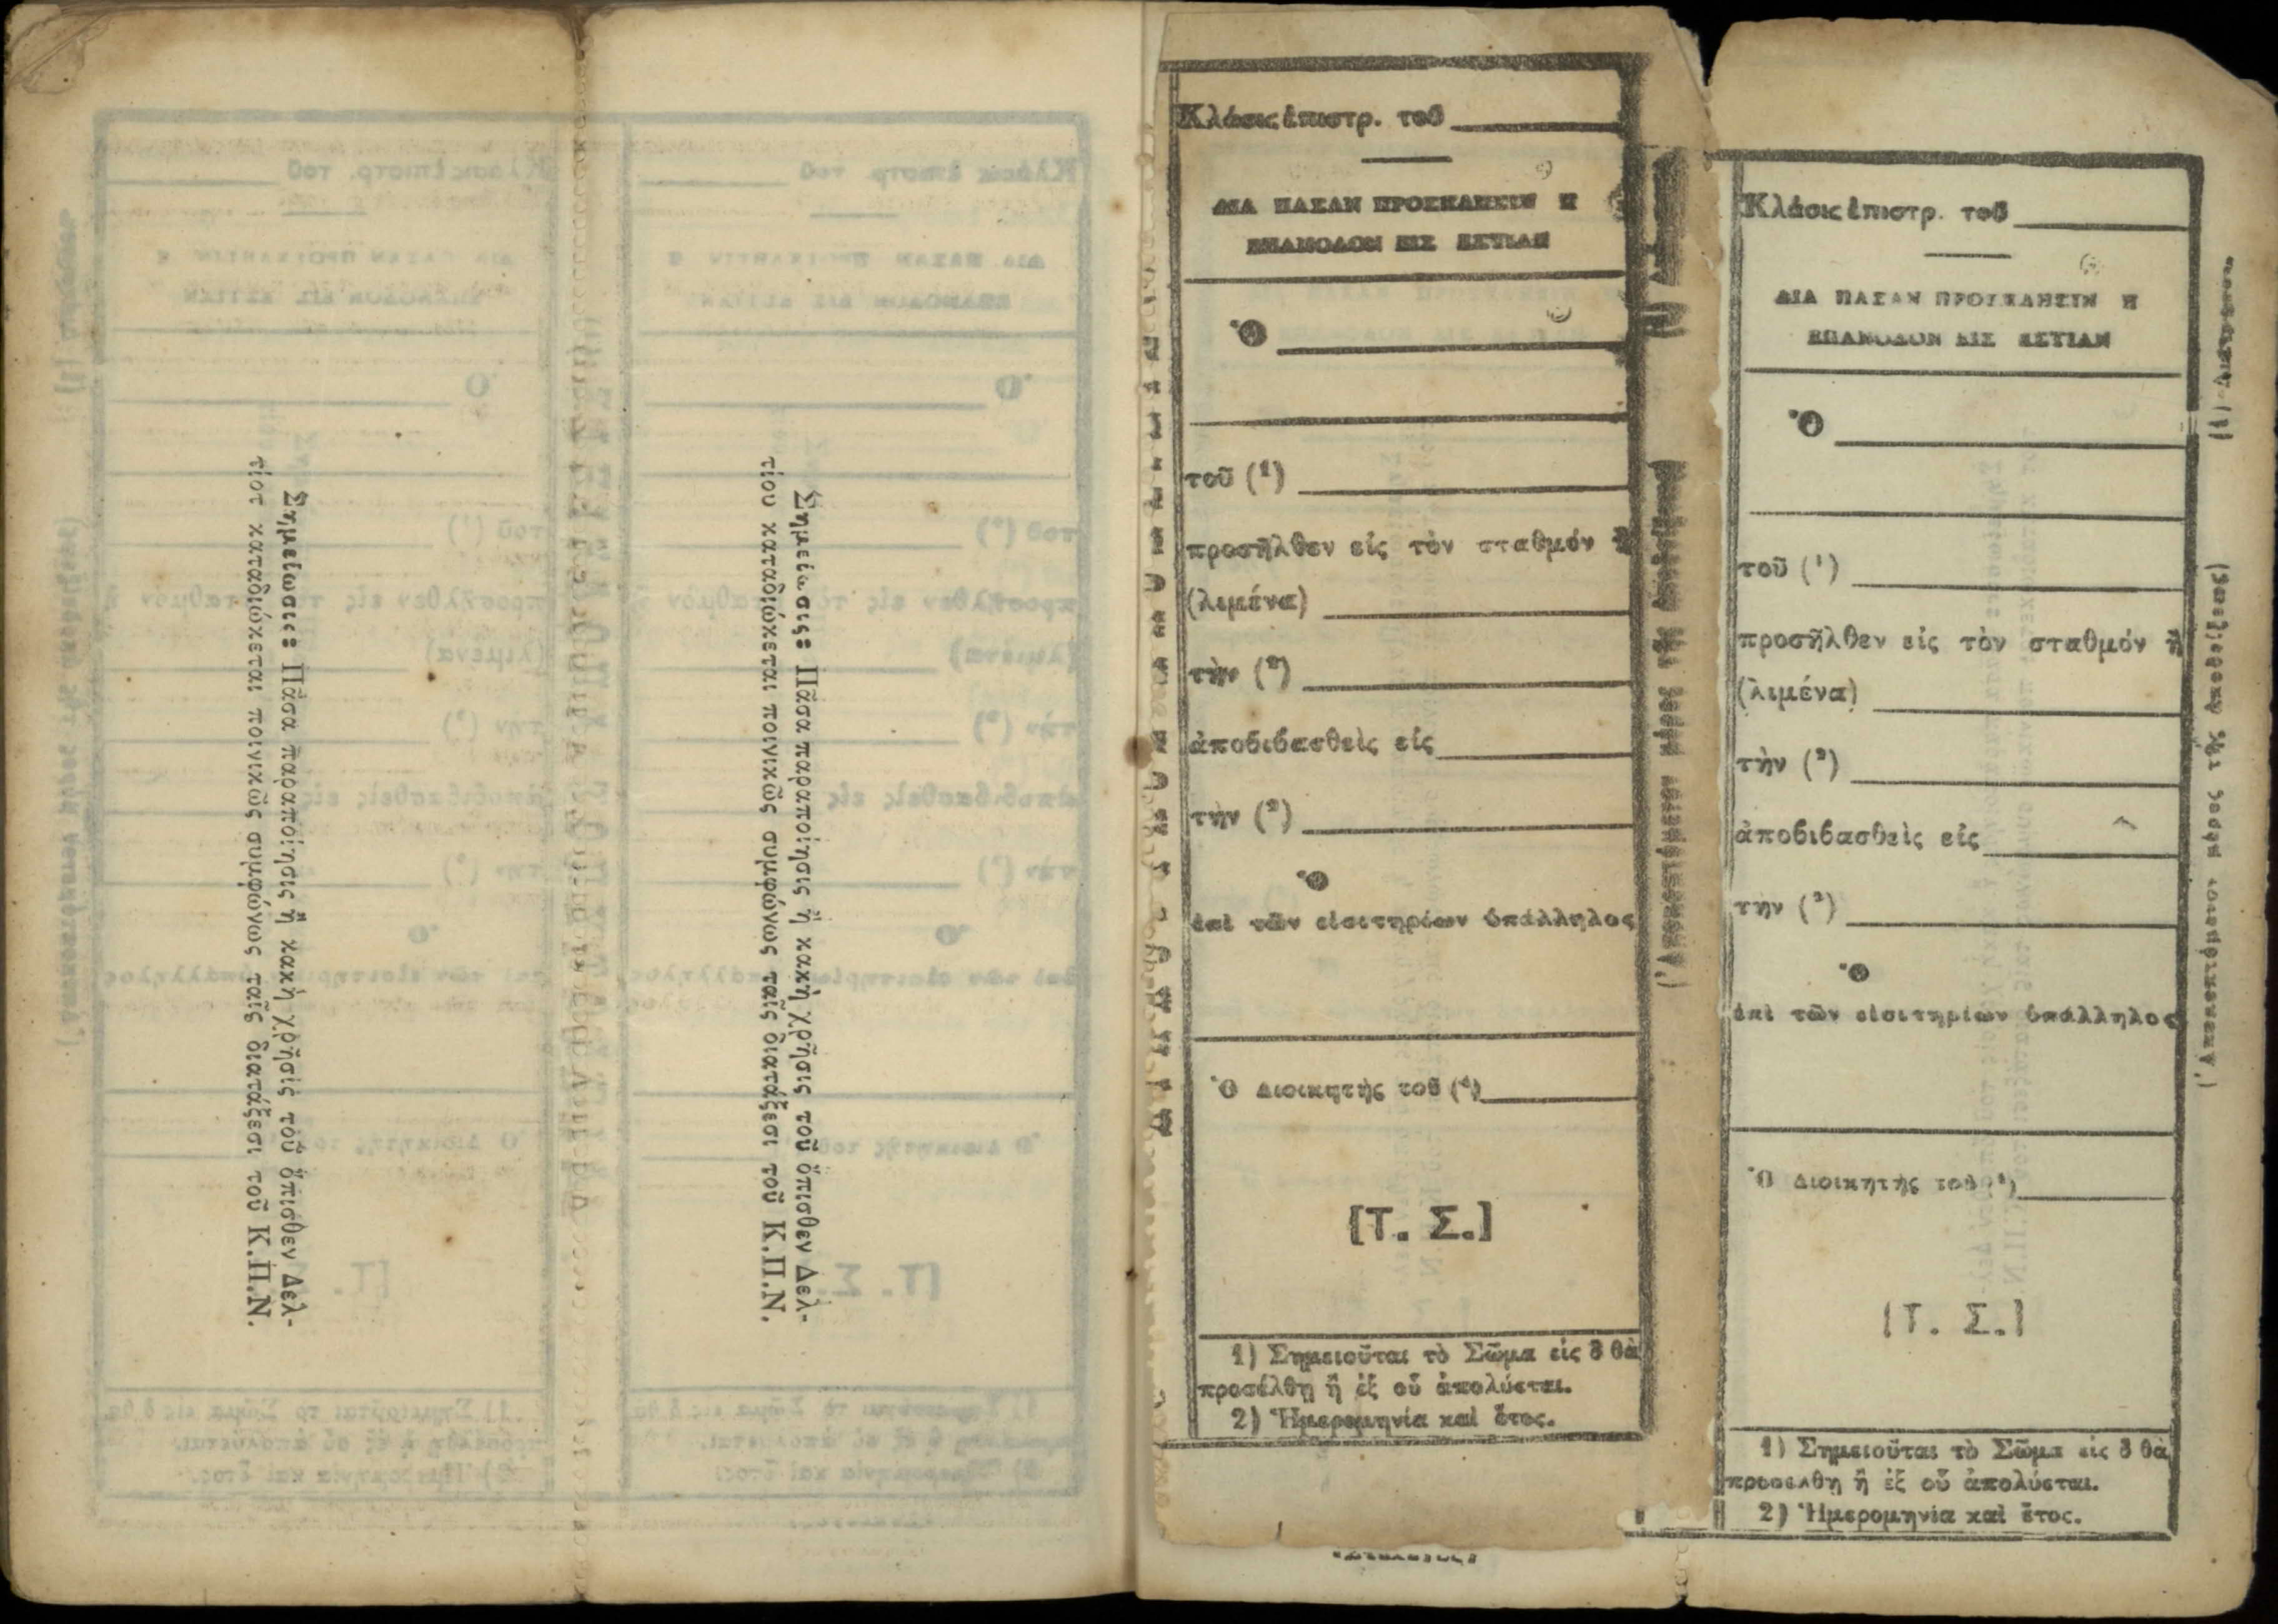 Σημείωσις: Πᾶσα παραποίησις ἢ κακὴ χρῆσις τοῦ ὄπισθεν Δελ-
τίου καταδιώκεται ποινικῶς συμφώνως ταῖς διατάξεσι τοῦ Κ.Π.Ν.
Σημείωσις: Πᾶσα παραποίησις ἢ κακὴ χρῆσις τοῦ ὄπισθεν Δελ-
τίου καταδιώκεται ποινικῶς συμφώνως ταῖς διατάξεσι τοῦ Κ.Π.Ν.
Κλάσις ἐπιστρ. τοῦ
ΔΙΑ ΠΑΣΑΝ ΠΡΟΣΚΛΗΣΙΝ Η
ΕΠΑΝΟΔΟΝ ΕΙΣ ΕΣΤΙΑΝ
Ὁ
τοῦ (1)
προσῆλθεν εἰς τὸν σταθμόν ἢ
(λιμένα)
τὴν (2)
ἀποβιβασθεὶς εἰς
τὴν (2)
Ὁ
ἐπὶ τῶν εἰσιτηρίων ὑπάλληλος
Ὁ Διοικητὴς τοῦ (1)
[Τ. Σ.]
1) Σημειοῦται τὸ Σῶμα εἰς ὃ θὰ
προσέλθῃ ἢ ἐξ οὗ ἀπολύεται.
2) Ἡμερομηνία καὶ ἔτος.
(Ἀποκοπτόμενον μέρος τῆς
Κλάσις ἐπιστρ. τοῦ
ΔΙΑ ΠΑΣΑΝ ΠΡΟΣΚΛΗΣΙΝ Η
ΕΠΑΝΟΔΟΝ ΕΙΣ ΕΣΤΙΑΝ
Ὁ
τοῦ (1)
προσῆλθεν εἰς τὸν σταθμόν ἢ
(λιμένα)
τὴν (2)
ἀποβιβασθεὶς εἰς
τὴν (2)
Ὁ
ἐπὶ τῶν εἰσιτηρίων ὑπάλληλος
Ὁ Διοικητὴς τοῦ (1)
[Τ. Σ.]
1) Σημειοῦται τὸ Σῶμα εἰς ὃ θὰ
προσέλθῃ ἢ ἐξ οὗ ἀπολύεται.
2) Ἡμερομηνία καὶ ἔτος.
(Ἀποκοπτόμενον μέρος τῆς